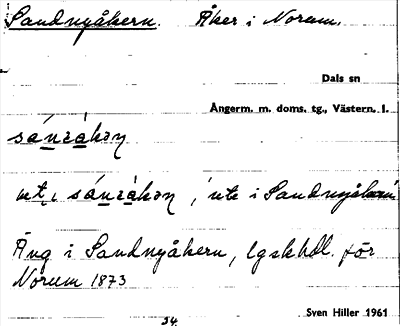 Sandnyåkern. Åker i Norum.
Dals sn
Ångerm. m. doms. tg., Västern. l.
sánrákoɲ
ut i sánrákoɲ, 'ute i Sandnyåkern'
Äng i Sandnyåkern, lgskhdl. för
Norum 1873
34.
Sven Hiller 1961